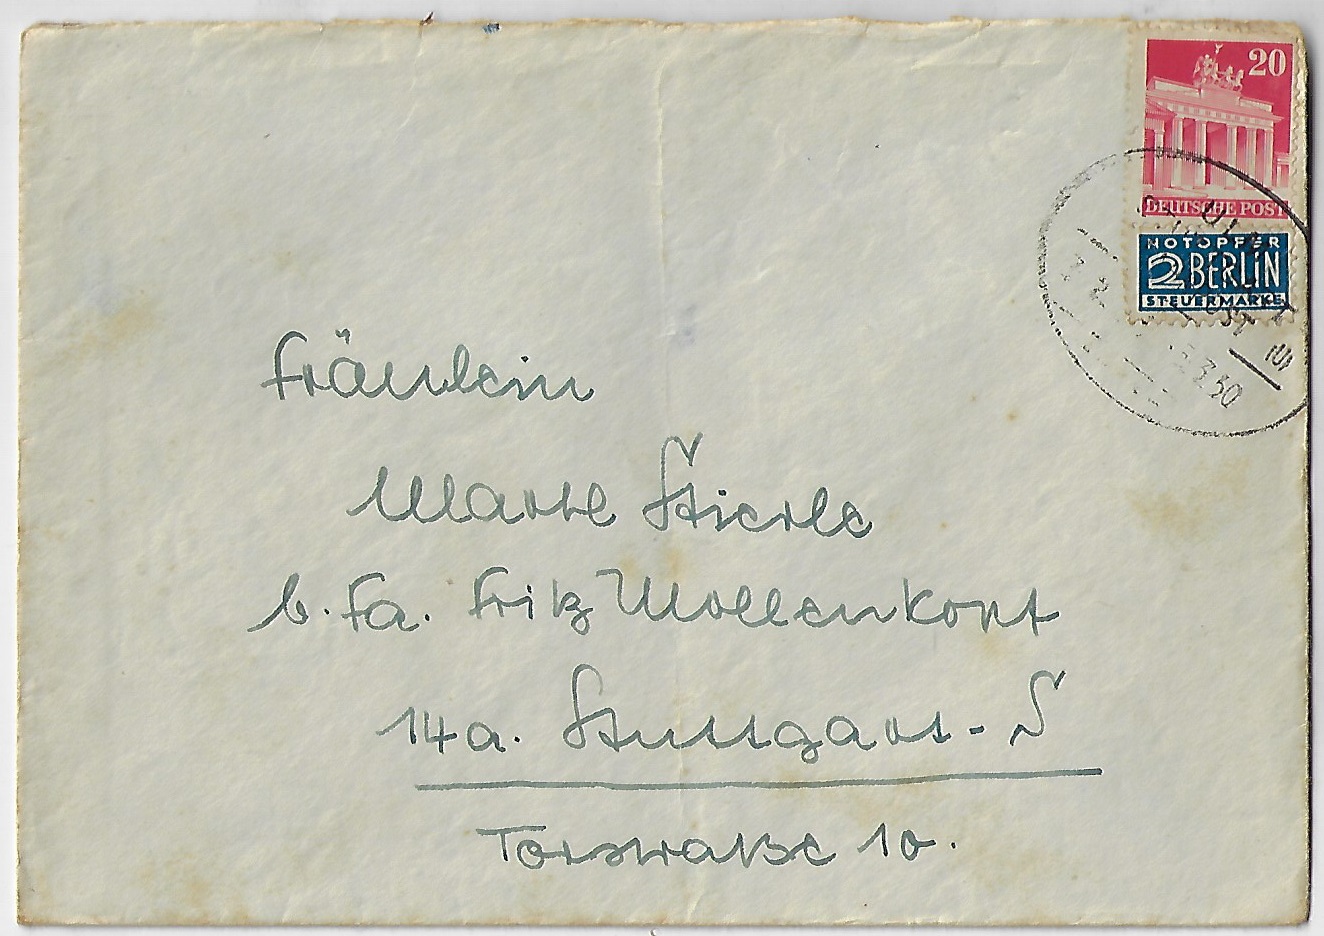 20
DEUTSCHE POST
NOTOPFER
2 BERLIN
STEUERMARKE
Fräulein
Martl Stierle
b. Fa. Fritz Mollenkopf
14a. Stuttgart-S
Torstraße 10.